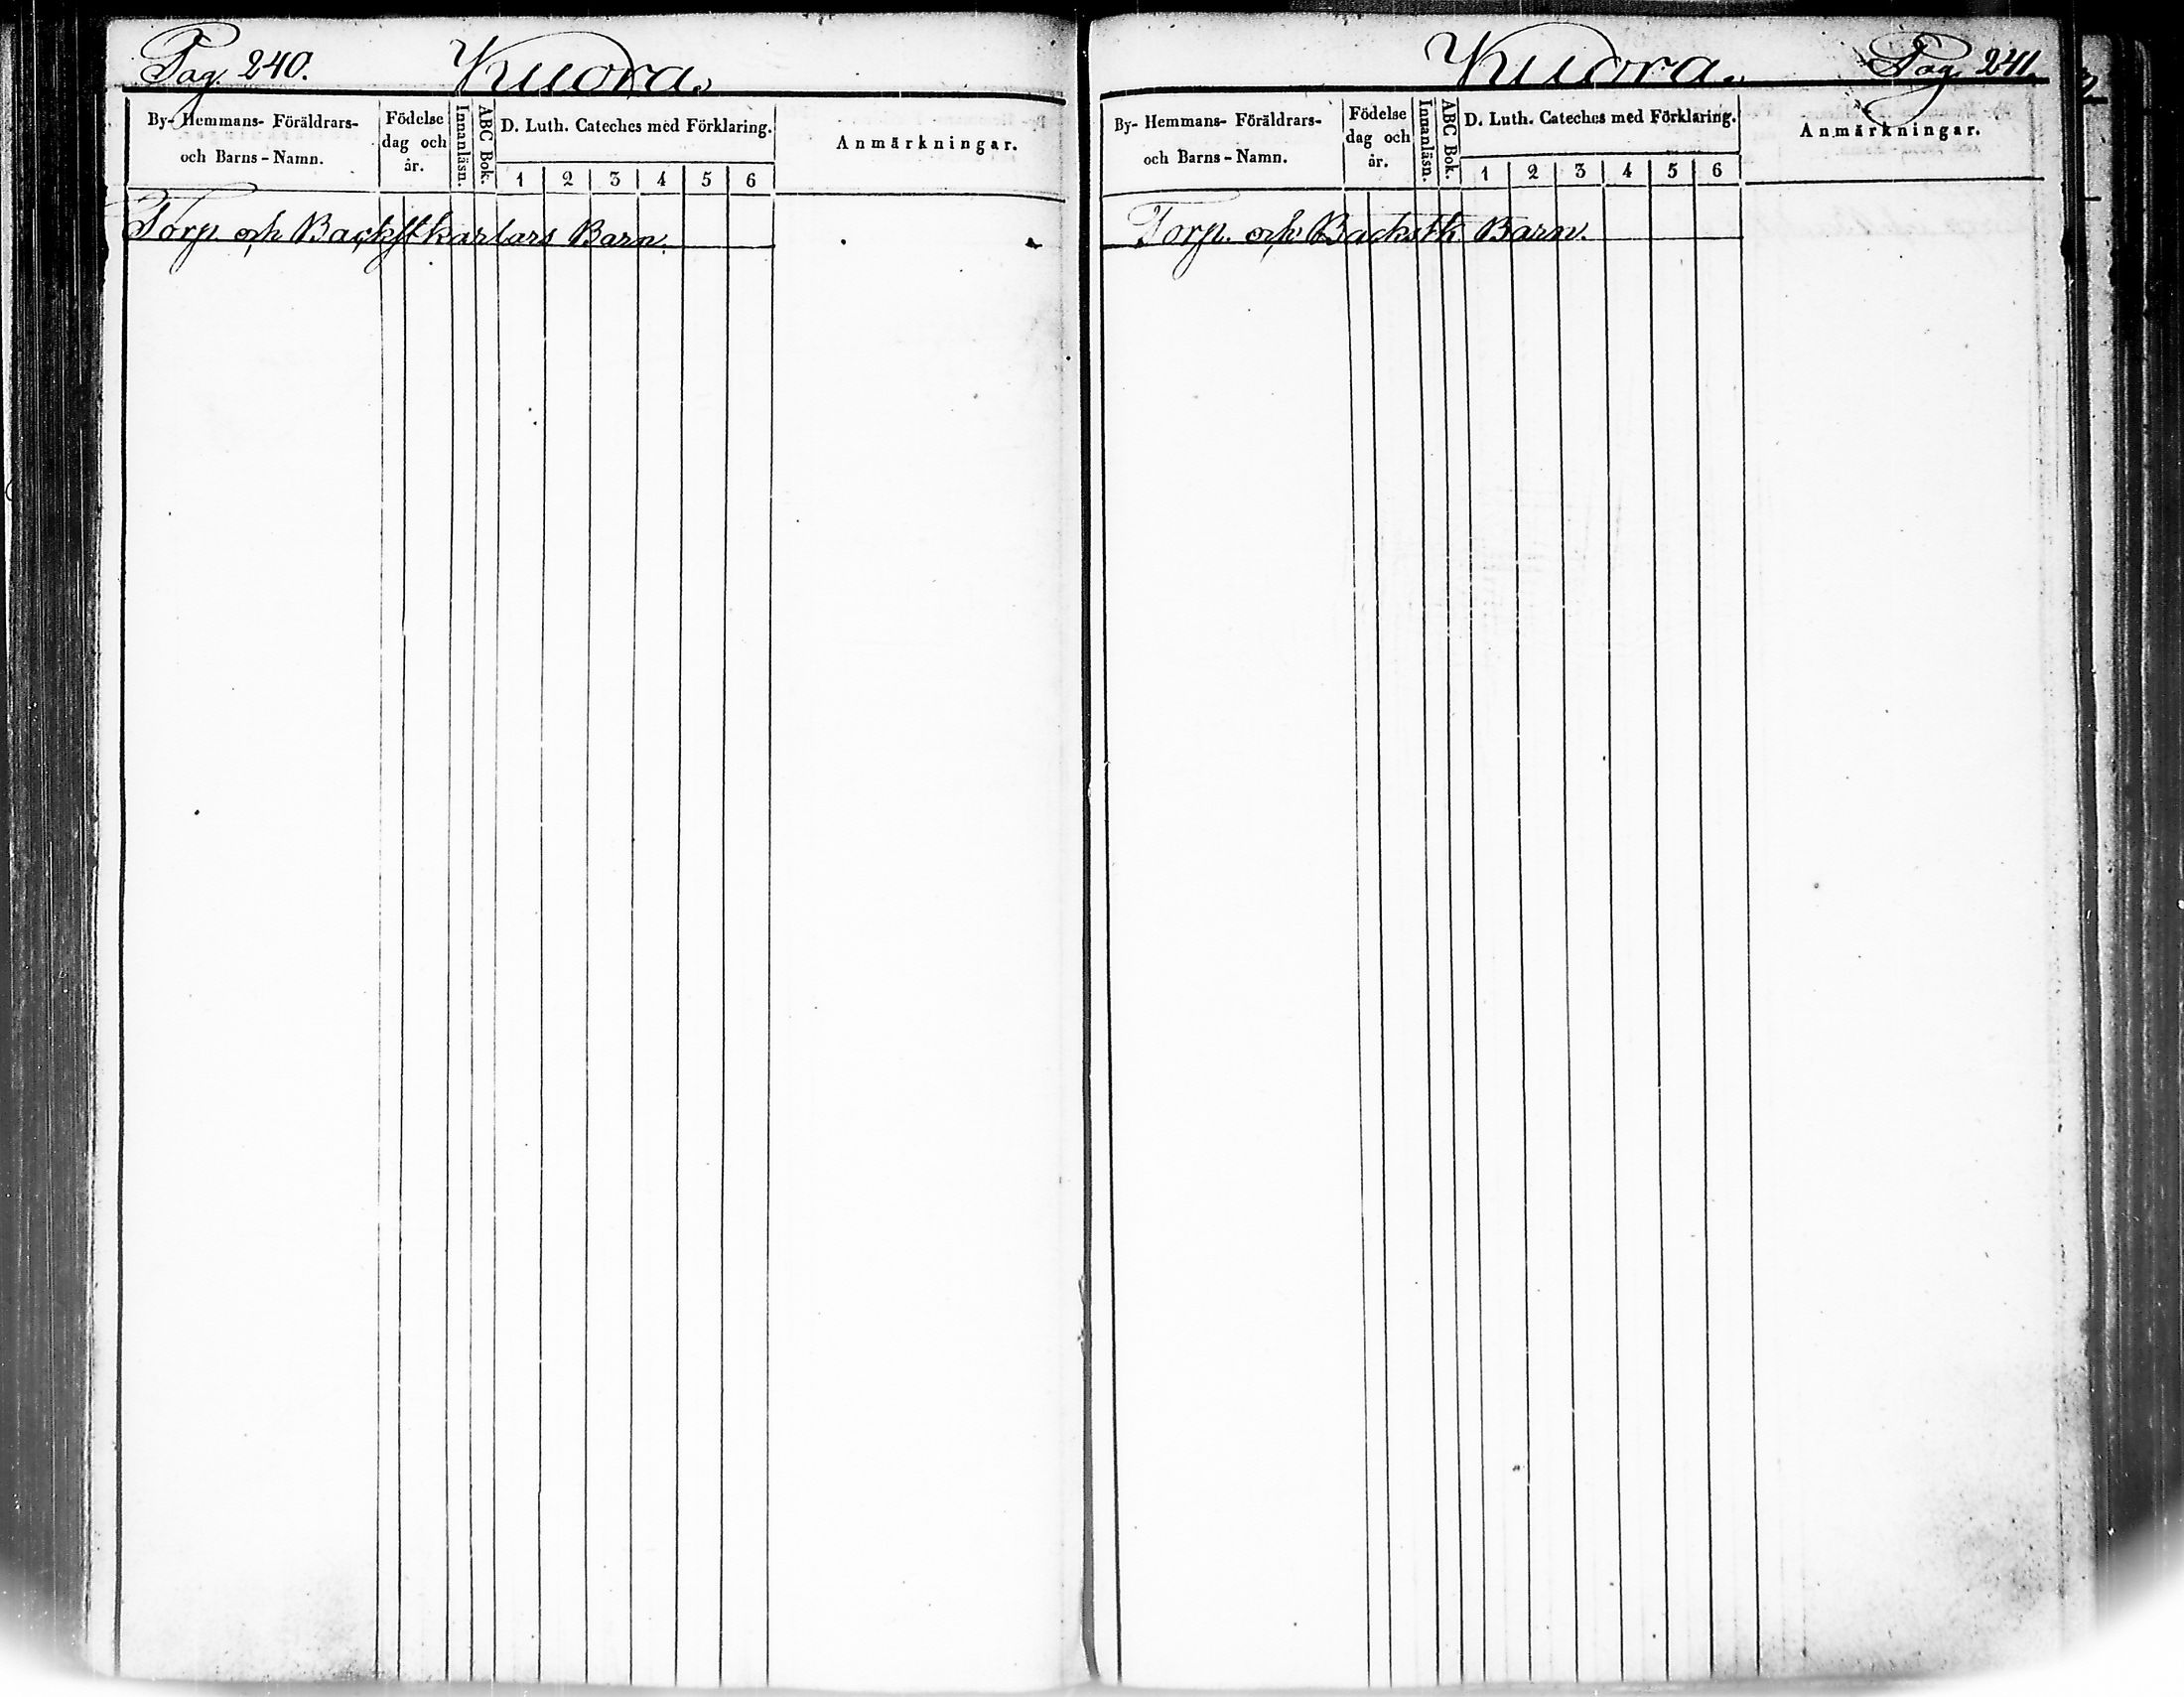 Pag. 240.
Kuora.
By- Hemmans- Föräldrars-
och Barns - Namn.
Födelse
dag och
år.
Innanläsn.
ABC Bok.
D. Luth. Cateches med Förklaring.
1 2 3 4 5 6
Anmärkningar.
Torp. och Backstkarlars Barn.
Kuora.
Pag. 241.
By- Hemmans- Föräldrars-
och Barns - Namn.
Födelse
dag och
år.
Innanläsn.
ABC Bok.
D. Luth. Cateches med Förklaring.
1 2 3 4 5 6
Anmärkningar.
Torp. och Backstk. Barn.